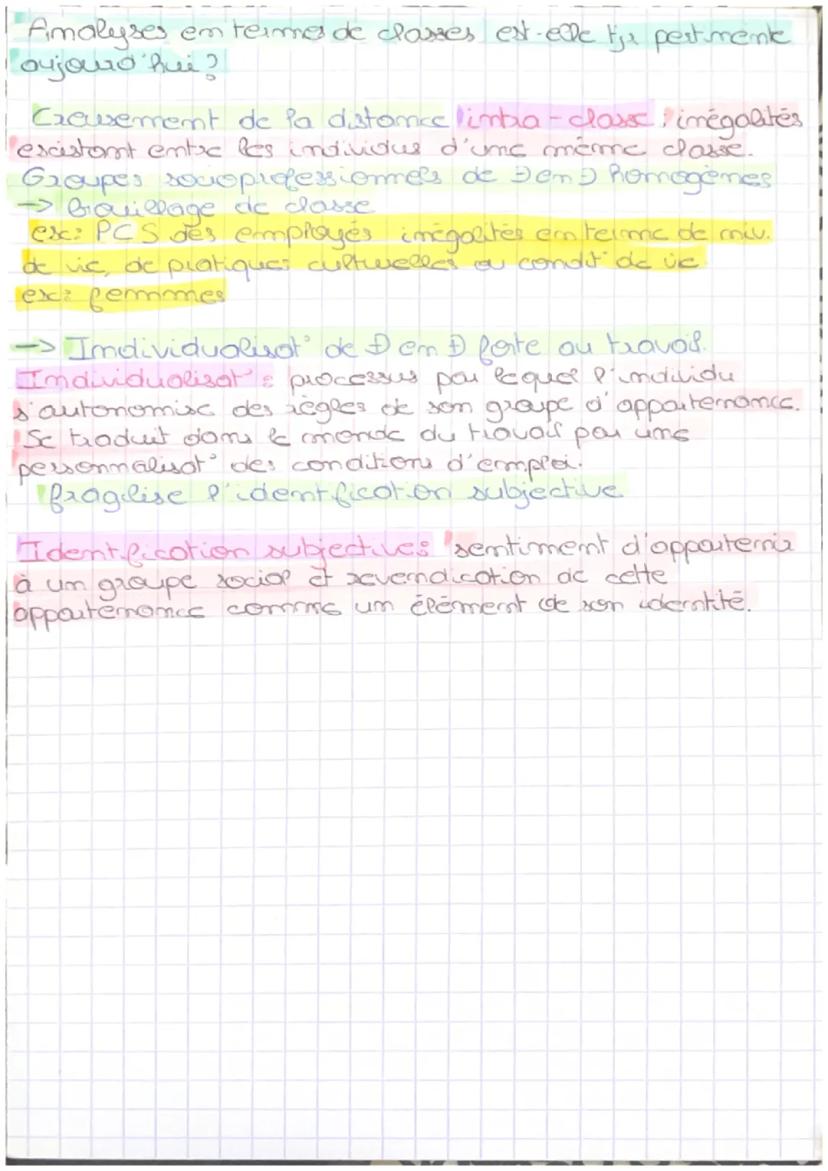 Analyses en termes de classes est-elle tjr pertinente
aujourd'hui ?
Creusement de la distance intra-class, inégalités
existant entre les individus d'une même classe.
Groupes socioprofessionnels de - en - homogènes
-> Brouillage de classe
ex: PCS des employés inégalités en terme de niv.
de vie, de pratiques culturelles ou condit° de vie
ex: femmes
-> Individualisat° de + en + forte au travail.
Individualisat° : processus par lequel l'individu
s'autonomise des règles de son groupe d'appartenance.
Se traduit dans le monde du travail par une
personnalisat° des conditions d'emploi.
fragilise l'identification subjective
Identification subjectives sentiment d'appartenir
à un groupe social et revendication de cette
appartenance comme un élément de son identité.